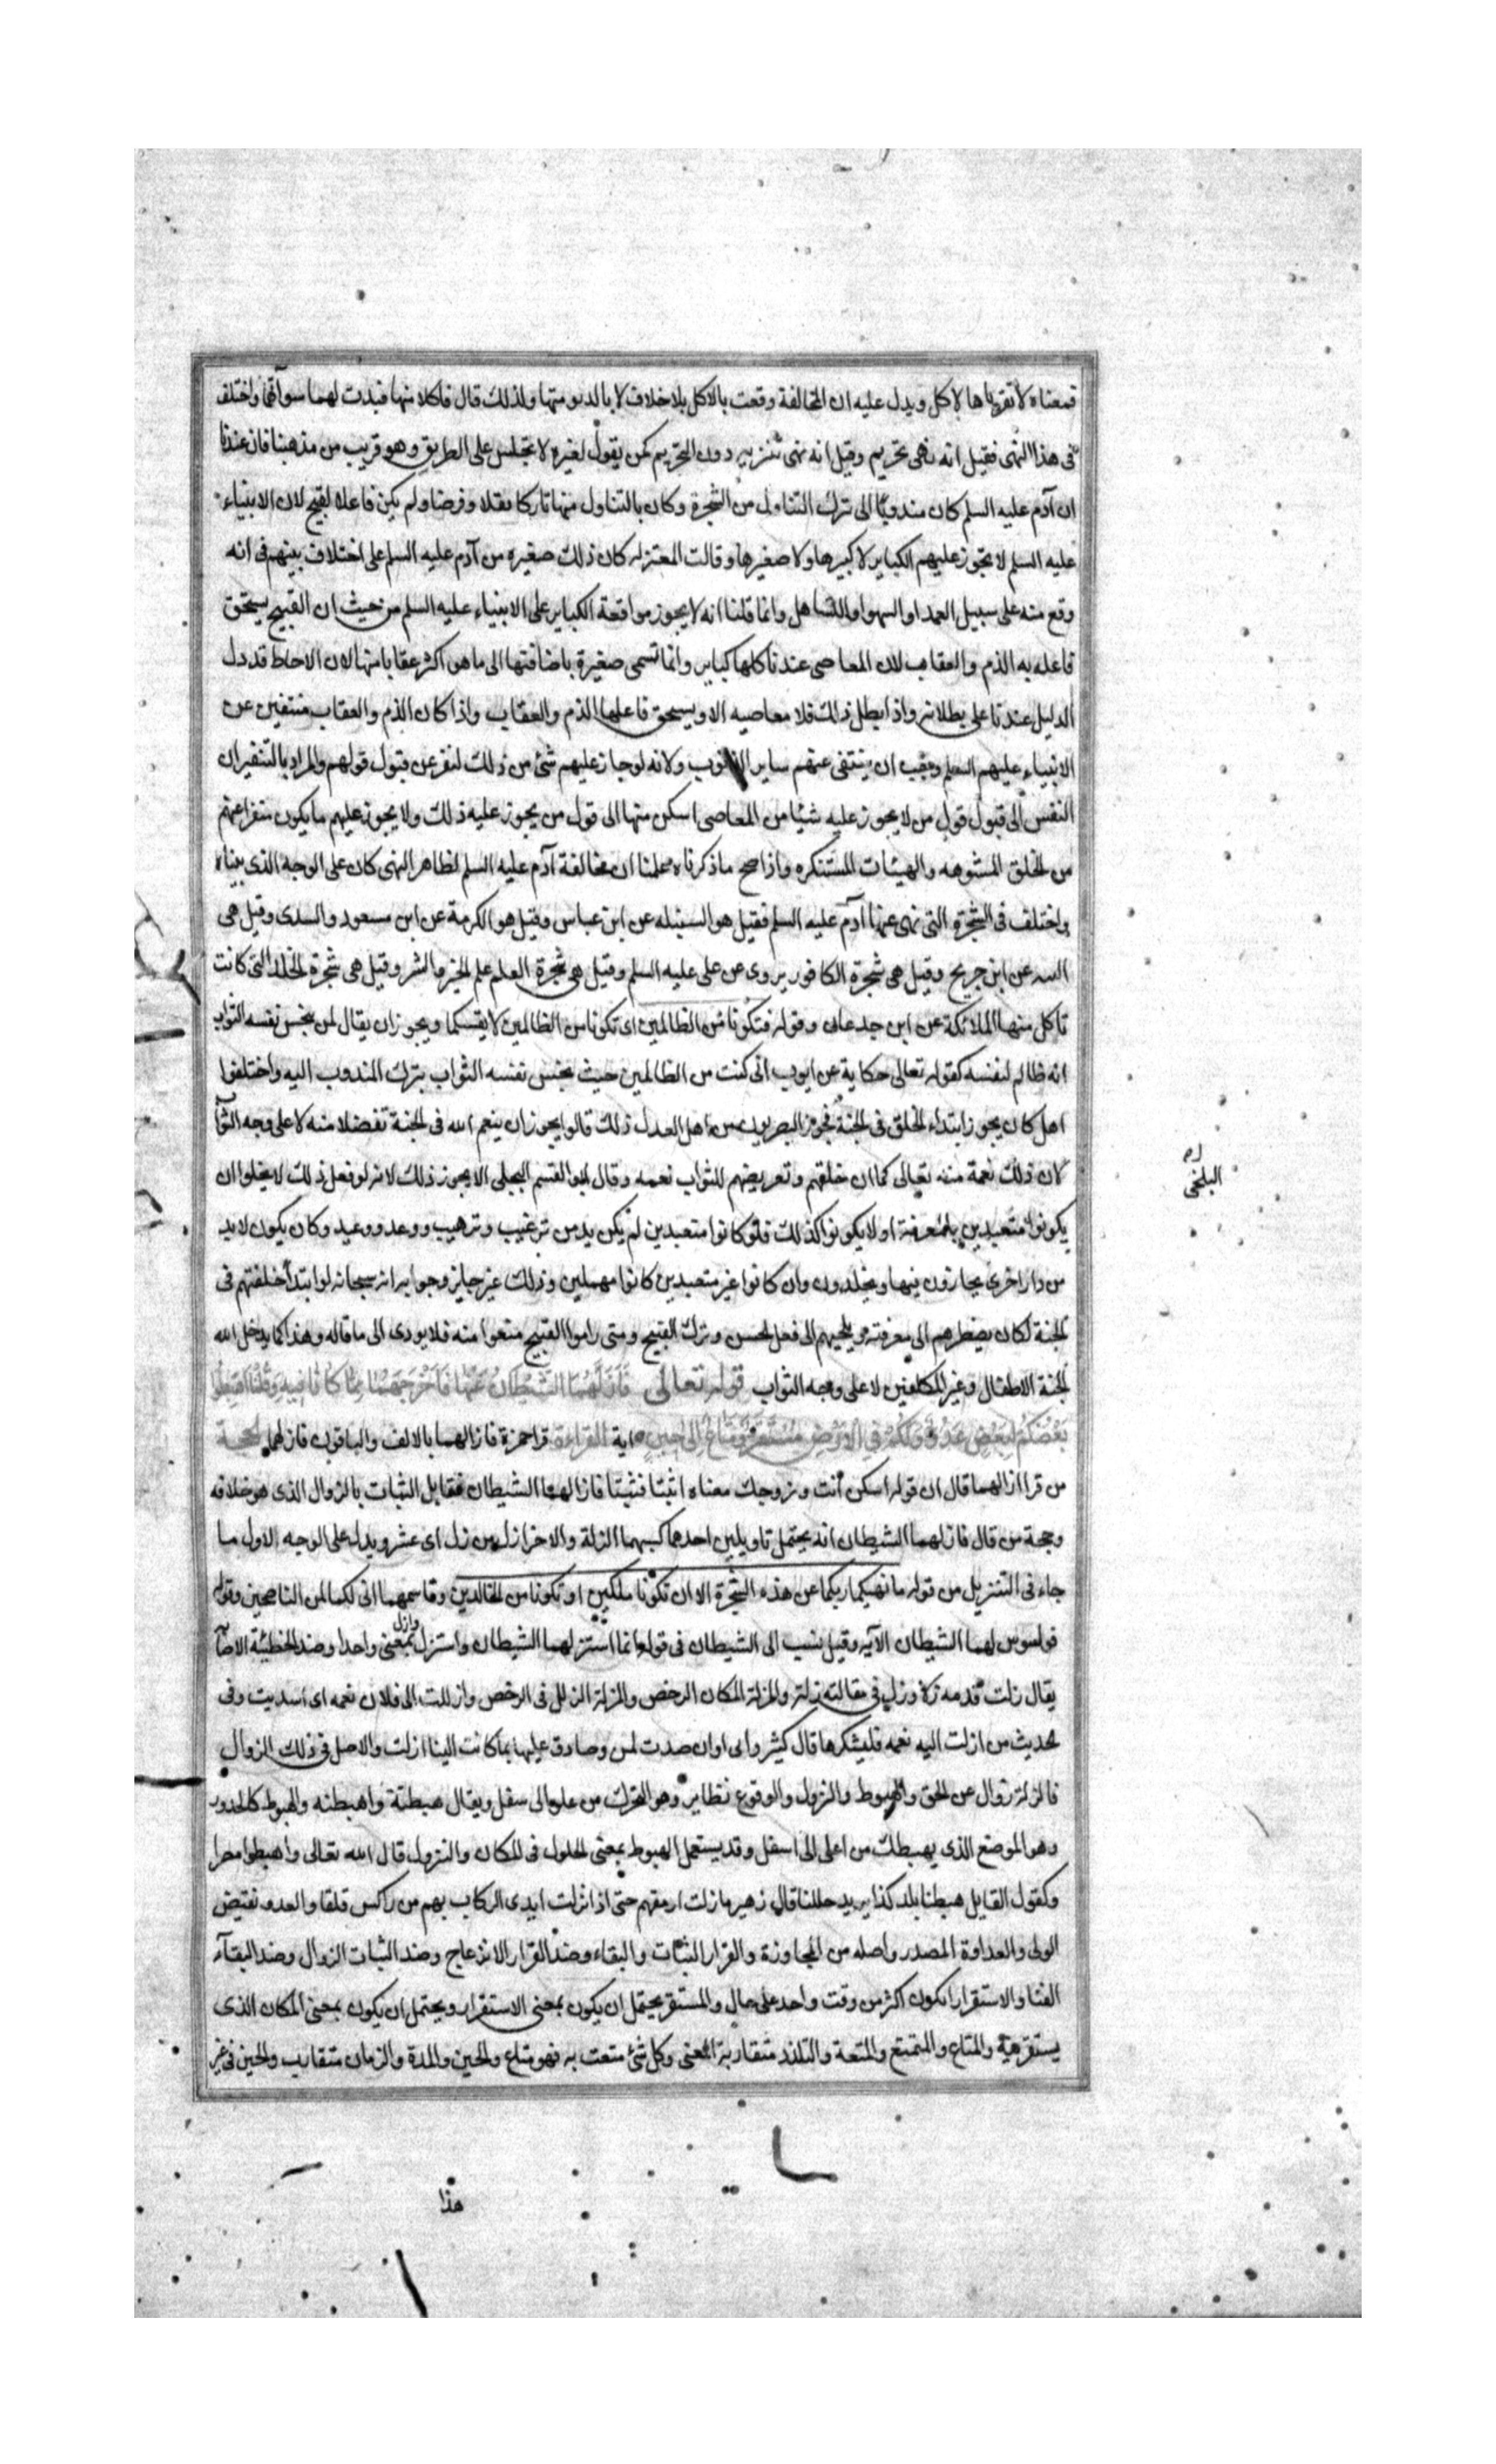 فمعناه لا تقرباها لاكل ويدل عليه ان المخالفة وقعت بالاكل بلا خلاف لا بالدنو منها ولذلك قال فاكلا منها فبدت لهما سوآتهما واختلف
فى هذا النهى فقيل انه نهى تحريم وقيل انه نهى تنزيه دون التحريم كمن يقول لغيره لا تجلس على الطريق وهو قريب من مذهبنا فان عندنا
ان آدم عليه السلم كان مندوبا الى ترك التناول من الشجرة وكان بالتناول منها تاركا نفلا وفرضا ولم يكن فاعلا لقبيح لان الانبياء
عليه السلم لا يجوز عليهم الكباير لا كبيرها ولا صغيرها وقالت المعتزله كان ذلك صغيره من آدم عليه السلم على اختلاف بينهم فى انه
وقع منه على سبيل العمد او السهو او التساهل وانما قلنا انه لا يجوز مواقعة الكباير على الانبياء عليه السلم من حيث ان القبيح يستحق
فاعله به الذم والعقاب لان المعاصى عندنا كلها كباير وانما تسمى صغيرة باضافتها الى ما هو اكثر عقابا منها لان الاحباط قد دل
الدليل عندنا على بطلانه واذا بطل ذلك فلا معاصيه الا ويستحق فاعلها الذم والعقاب واذا كان الذم والعقاب منتفين عن
الانبياء عليهم السلم وجب ان ينتفى عنهم ساير الذنوب ولانه لو جاز عليهم شئ من ذلك لنفر عن قبول قولهم والمراد بالتنفير ان
النفس الى قبول قول من لا يجوز عليه شيئا من المعاصى اسكن منها الى قول من يجوز عليه ذلك ولا يجوز عليهم ما يكون منفرا عنهم
من الخلق المشوهه والهيئات المستنكره واذا صح ما ذكرناه علمنا ان مخالفة آدم عليه السلم لظاهر النهى كان على الوجه الذى بيناه
واختلف فى الشجرة التى نهى عنها آدم عليه السلم فقيل هو السنبله عن ابن عباس وقيل هو الكرمة عن ابن مسعود والسدى وقيل هى
عن ابن جريح وقيل هى شجرة الكافور يروى عن على عليه السلم وقيل هى شجرة العلم علم الخير والشر وقيل هى شجرة الخلد التى كانت
تاكل منها الملائكة عن ابن جدعان وقوله فتكونا من الظالمين اى تكونا من الظالمين لانفسكما ويجوز ان يقال لمن بخس نفسه الثواب
انه ظالم لنفسه كقوله تعالى حكاية عن ايوب انى كنت من الظالمين حيث بخس نفسه الثواب بترك المندوب اليه واختلفوا
اهل كان يجوز ابتداء الخلق فى الجنة فجوز البصريون من اهل العدل ذلك قالوا يجوز ان ينعم الله فى الجنة تفضلا منه لا على وجه الثواب
لان ذلك نعمة منه تعالى كما ان خلقهم وتعريضهم للثواب نعمه وقال ابو القسم الا يجوز ذلك لانه لو فعل ذلك لا يخلوا ان
يكونوا متعبدين بالمعرفة او لا يكونوا كذلك فلو كانوا متعبدين لم يكن بد من ترغيب وترهيب ووعد ووعيد وكان يكون لا بد
من دار اخرى يجازون فيها ويخلدون وان كانوا غير متعبدين كانوا مهملين وذلك غير جايز وجوابه انه سبحانه لو ابتدا خلقهم فى
الجنة لكان يضطرهم الى معرفته ويلجيهم الى فعل الحسن وترك القبيح ومتى راموا القبيح منعوا منه فلا يودى الى ما قاله وهذا كما يدخل الله
الجنة الاطفال وغير المكلفين لا على وجه الثواب قوله تعالى فَاَزَلَّهُمَا الشَّيْطَانُ عَنْهَا فَاَخْرَجَهُمَا مِمَّا كَانَا فِيهِ وَقُلْنَا اهْبِطُوا
بَعْضُكُمْ لِبَعْضٍ عَدُوٌّ وَلَكُمْ فِى الْاَرْضِ مُسْتَقَرٌّ وَمَتَاعٌ اِلَى حِينٍ اية القراءة قرا حمزة فازالهما بالالف والباقون فازلهما الحجة
من قرا ازالهما قال ان قوله اسكن أنت وزوجك معناه اثبتا فثبتا فازالهما الشيطان فقابل الثبات بالزوال الذى هو خلافه
وحجة من قال فازلهما الشيطان انه يحتمل تاويلين احدهما كسبهما الزلة والاخر ازل من زل اى عثر ويدل على الوجه الاول ما
جاء فى التنزيل من قوله ما نهيكما ربكما عن هذه الشجرة الا ان تكونا ملكين او تكونا من الخالدين وقاسمهما انى لكما لمن الناصحين وقوله
فوسوس لهما الشيطان الآيه وقيل نسب الى الشيطان فى قوله انما استزلهما الشيطان واستزل وازل بمعنى واحد وضد الخطيئة الاصابة
يقال زلت قدمه زلة وزل فى مقالته زلة والمزلة المكان الدحض والمزلة الزلل فى الدحض وازللت الى فلان نعمه اى اسديت وفى
الحديث من ازلت اليه نعمه فليشكرها قال كثير وانى وان صدت لمثن وصادق عليها بما كانت الينا ازلت والاصل فى ذلك الزوال
فالزلة زوال عن الحق والهبوط والنزول والوقوع نظاير وهو التحرك من علو الى سفل ويقال هبطته واهبطته والهبوط كالحدور
وهو الموضع الذى يهبطك من اعلى الى اسفل وقد يستعمل الهبوط بمعنى الحلول فى المكان والنزول قال الله تعالى واهبطوا مصرا
وكقول القايل هبطنا بلد كذا يريد حللنا قال زهير ما زلت ارمقهم حتى اذا نزلت ايدى الركاب بهم من راكس قلقا والعدو نقيض
الولى والعداوة المصدر واصله من المجاوزة والقرار الثبات والبقاء وضد القرار الانزعاج وضد الثبات الزوال وضد البقآء
الفنا والاستقرار الكون اكثر من وقت واحد على حال والمستقر يحتمل ان يكون بمعنى الاستقرار ويحتمل ان يكون بمعنى المكان الذى
يستقر فيه والمتاع والتمتع والمتعة والتلذذ متقاربة المعنى وكل شئ متعت به فهو متاع والحين والمدة والزمان متقارب والحين فى غير
البلخى
هذا